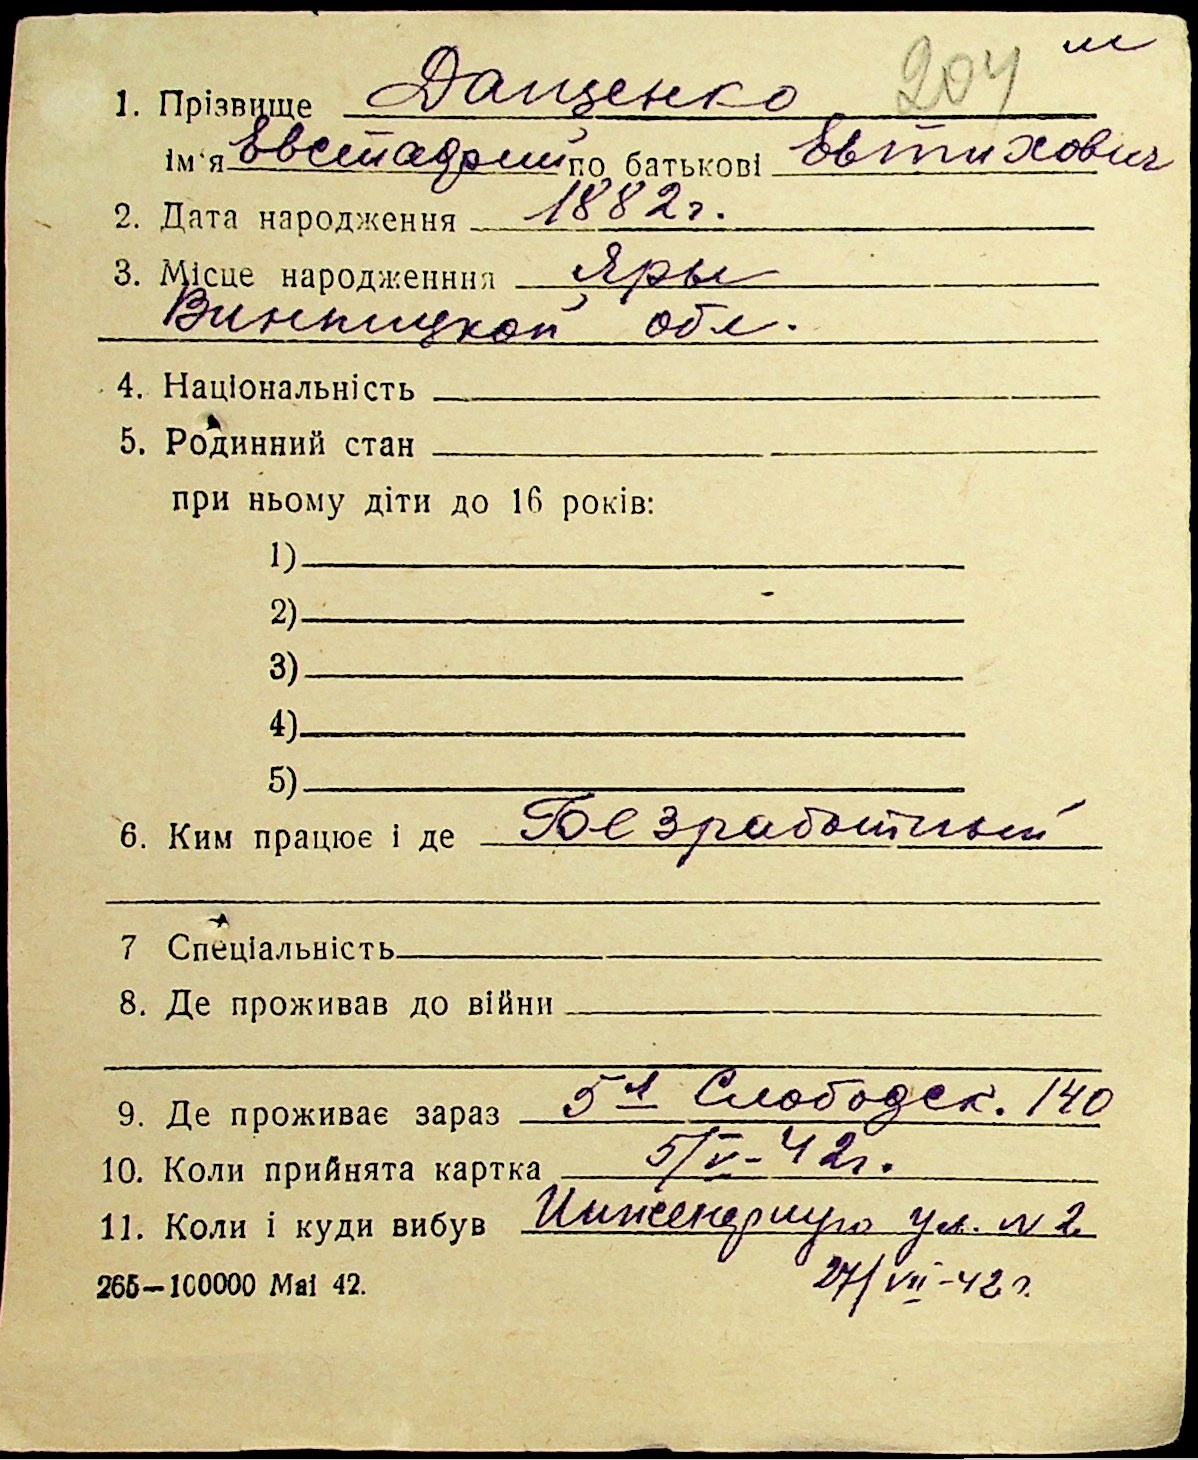 204 м
1. Прізвище Дащенко
ім'я Евстафий по батькові Евтихович
2. Дата народження 1882 г.
3. Місце народженння Яры
Винницкой обл.
4. Національність
5. Родинний стан
при ньому діти до 16 років:
1)
2)
3)
4)
5)
6. Ким працює і де Безработный
7 Спеціальність
8. Де проживав до війни
9. Де проживає зараз 5я Слободск. 140
10. Коли прийнята картка 5/V-42г.
11. Коли і куди вибув Инженерную ул. N 2
265—100000 Mai 42. 27/VII-42 г.